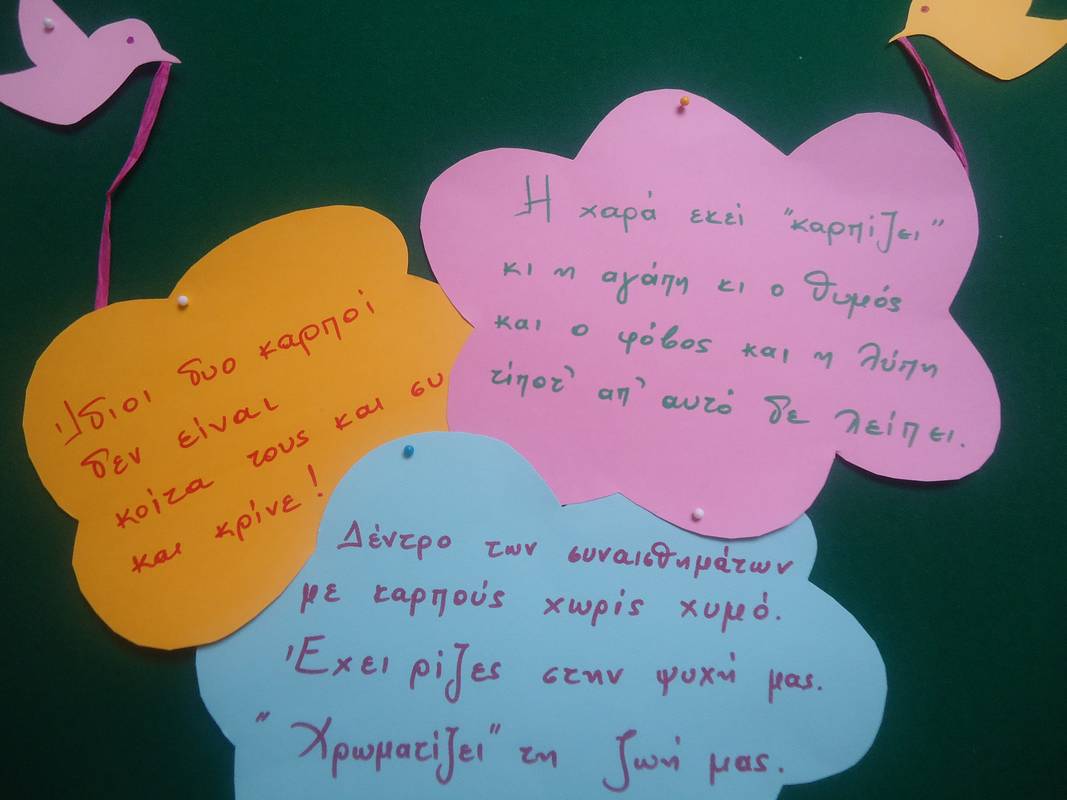 Ίδιοι δυο καρποί
δεν είναι
κοίτα τους και συ
και κρίνε!
Η χαρά εκεί "καρπίζει"
κι η αγάπη κι ο θυμός
και ο φόβος και η λύπη
τίποτ' απ' αυτό δε λείπει.
Δέντρο των συναισθημάτων
με καρπούς χωρίς χυμό.
Έχει ρίζες στην ψυχή μας.
"Χρωματίζει" τη ζωή μας.